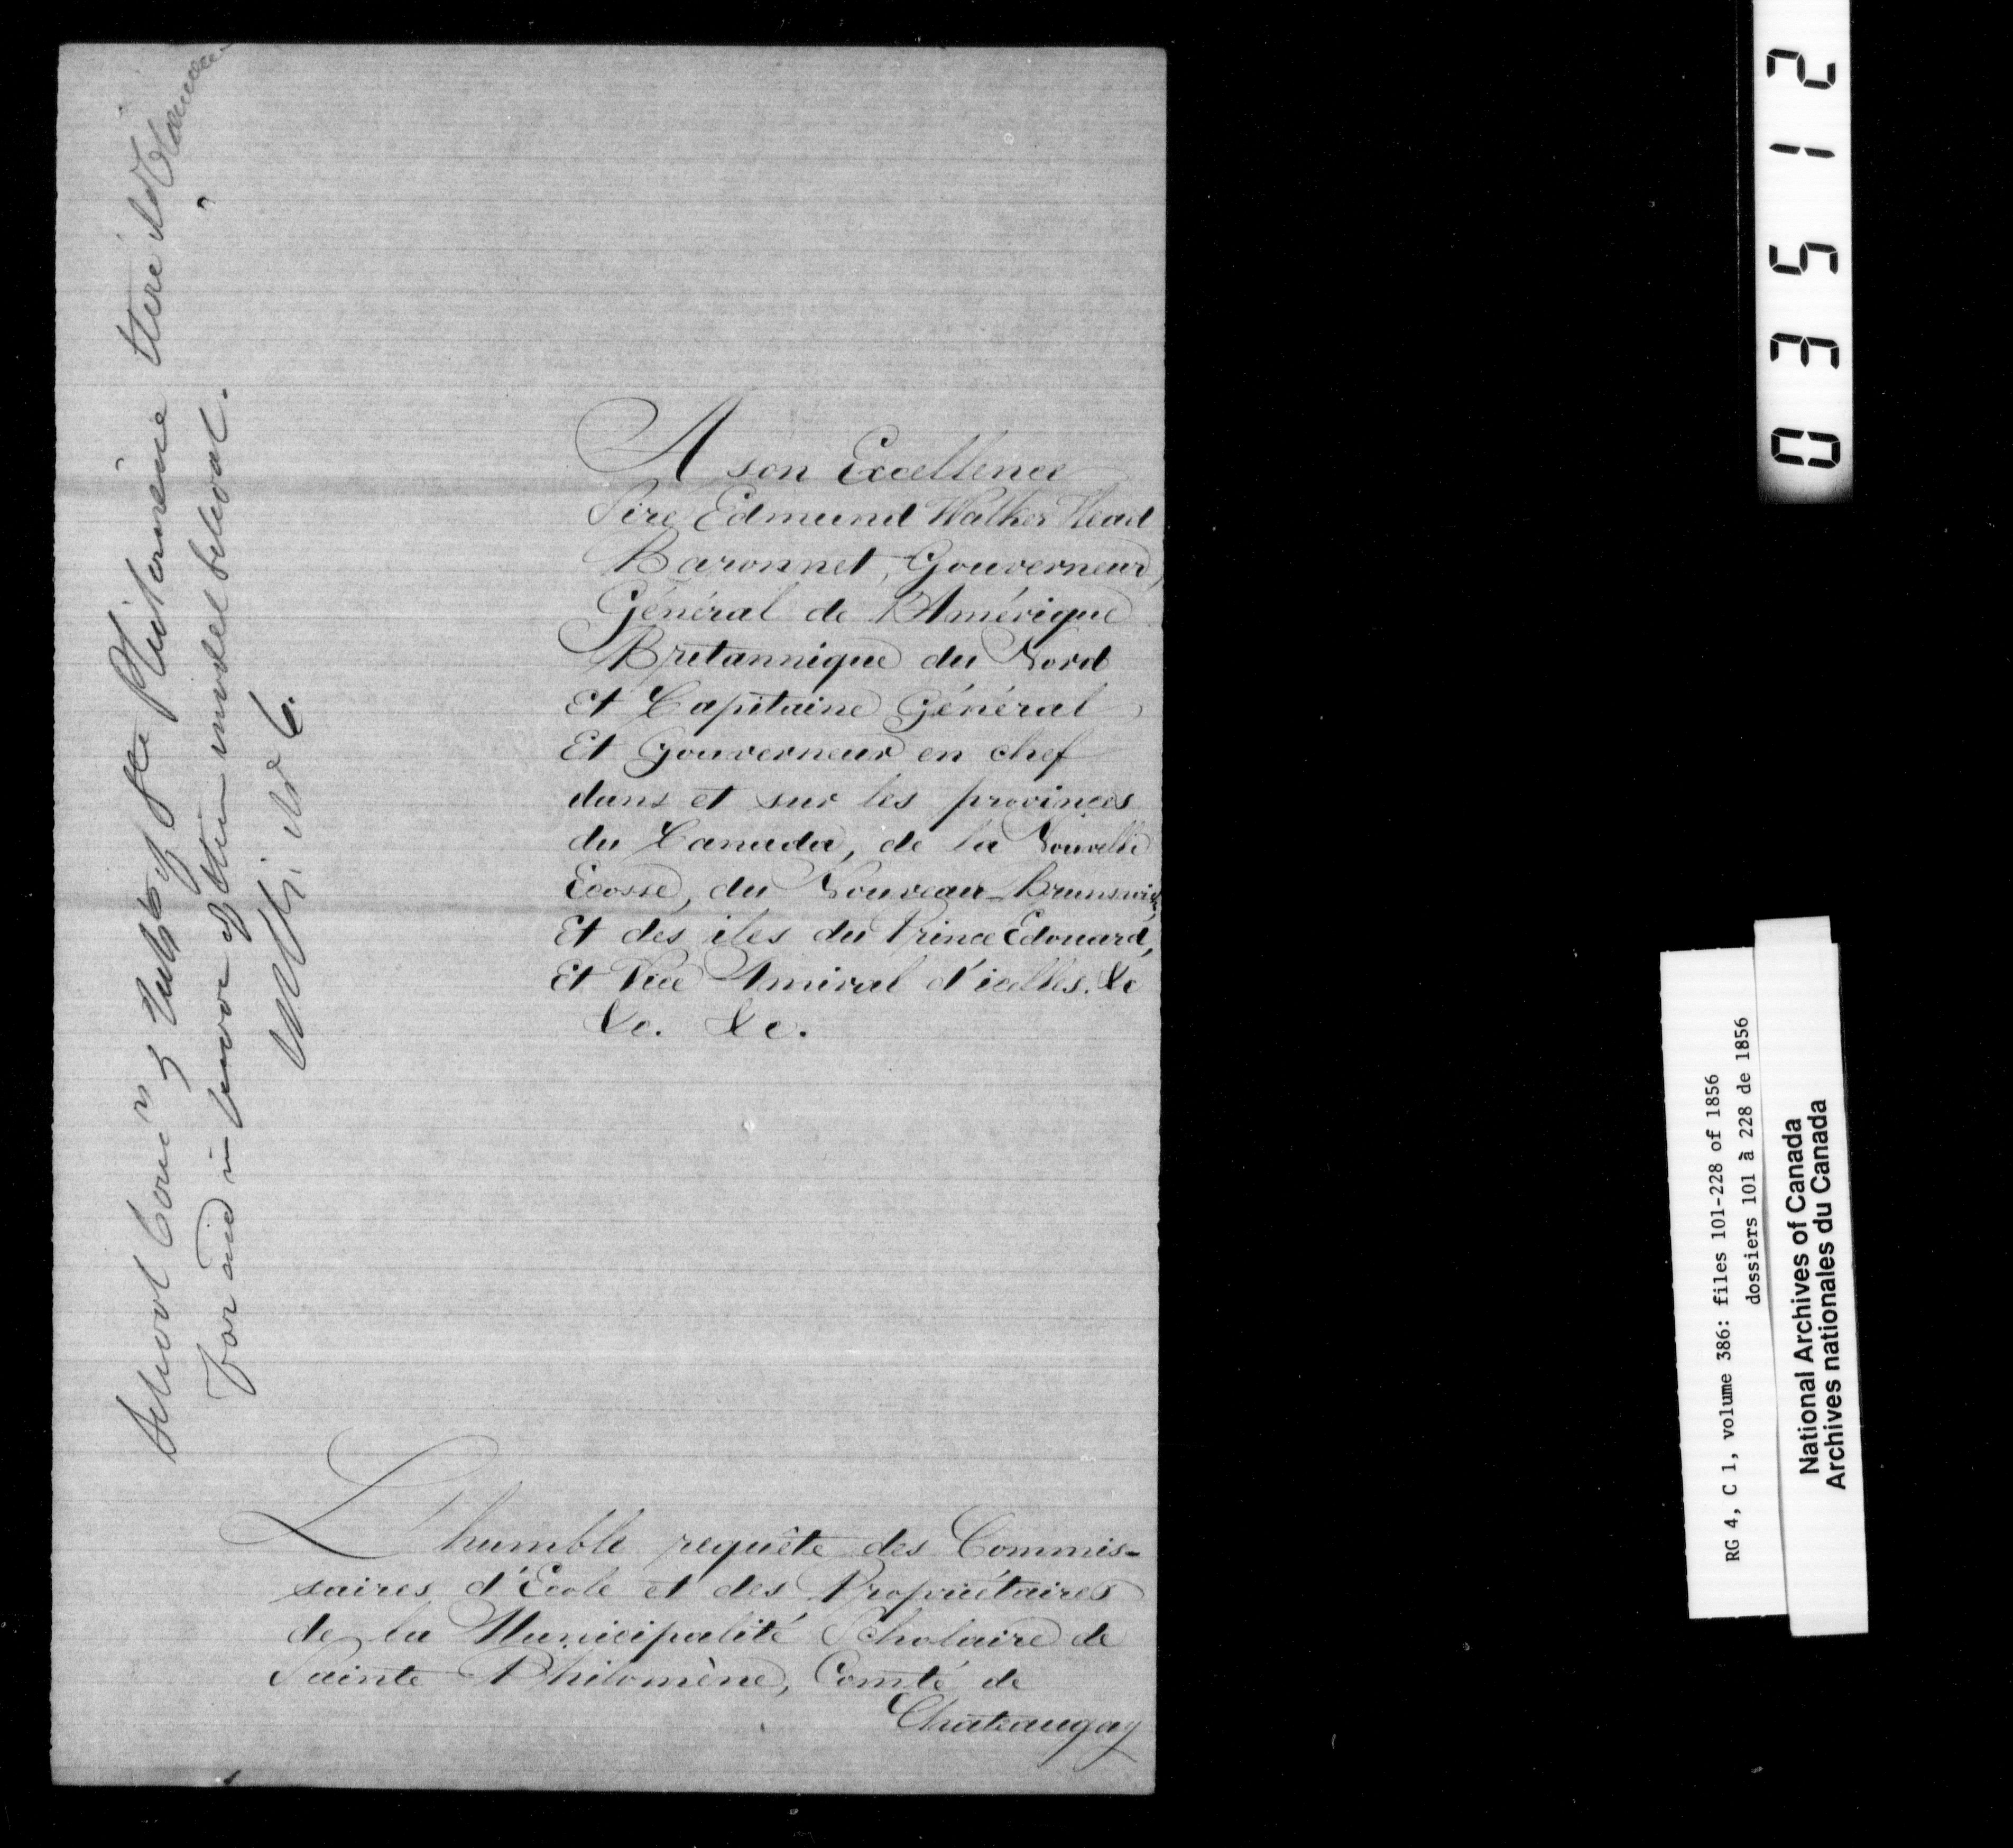 A son Excellence
Sire Edmund Walker Head
Baronnet, Gouverneur
Général de l'Amérique
Britannique du Nord
Et Capitaine Général
Et Gouverneur en chef
dans et sur les provinces
du Canada, de la Nouvelle
Ecosse, du Nouveau-Brunswick,
Et des iles du Prince Edouard,
Et Vice Amiral d'icelles. &c
&c. &c.
L'humble requête des Commis-
saires d'Ecole et des Propriétaires
de la Municipalité Scholaire de
Sainte Philomène, Comté de
Chateaugay
School Com of Ste Philomène
For aid in of their model School.
03512
RG 4, C 1, volume 386: files 101-228 of 1856
dossiers 101 à 228 de 1856
National Archives of Canada
Archives nationales du Canada